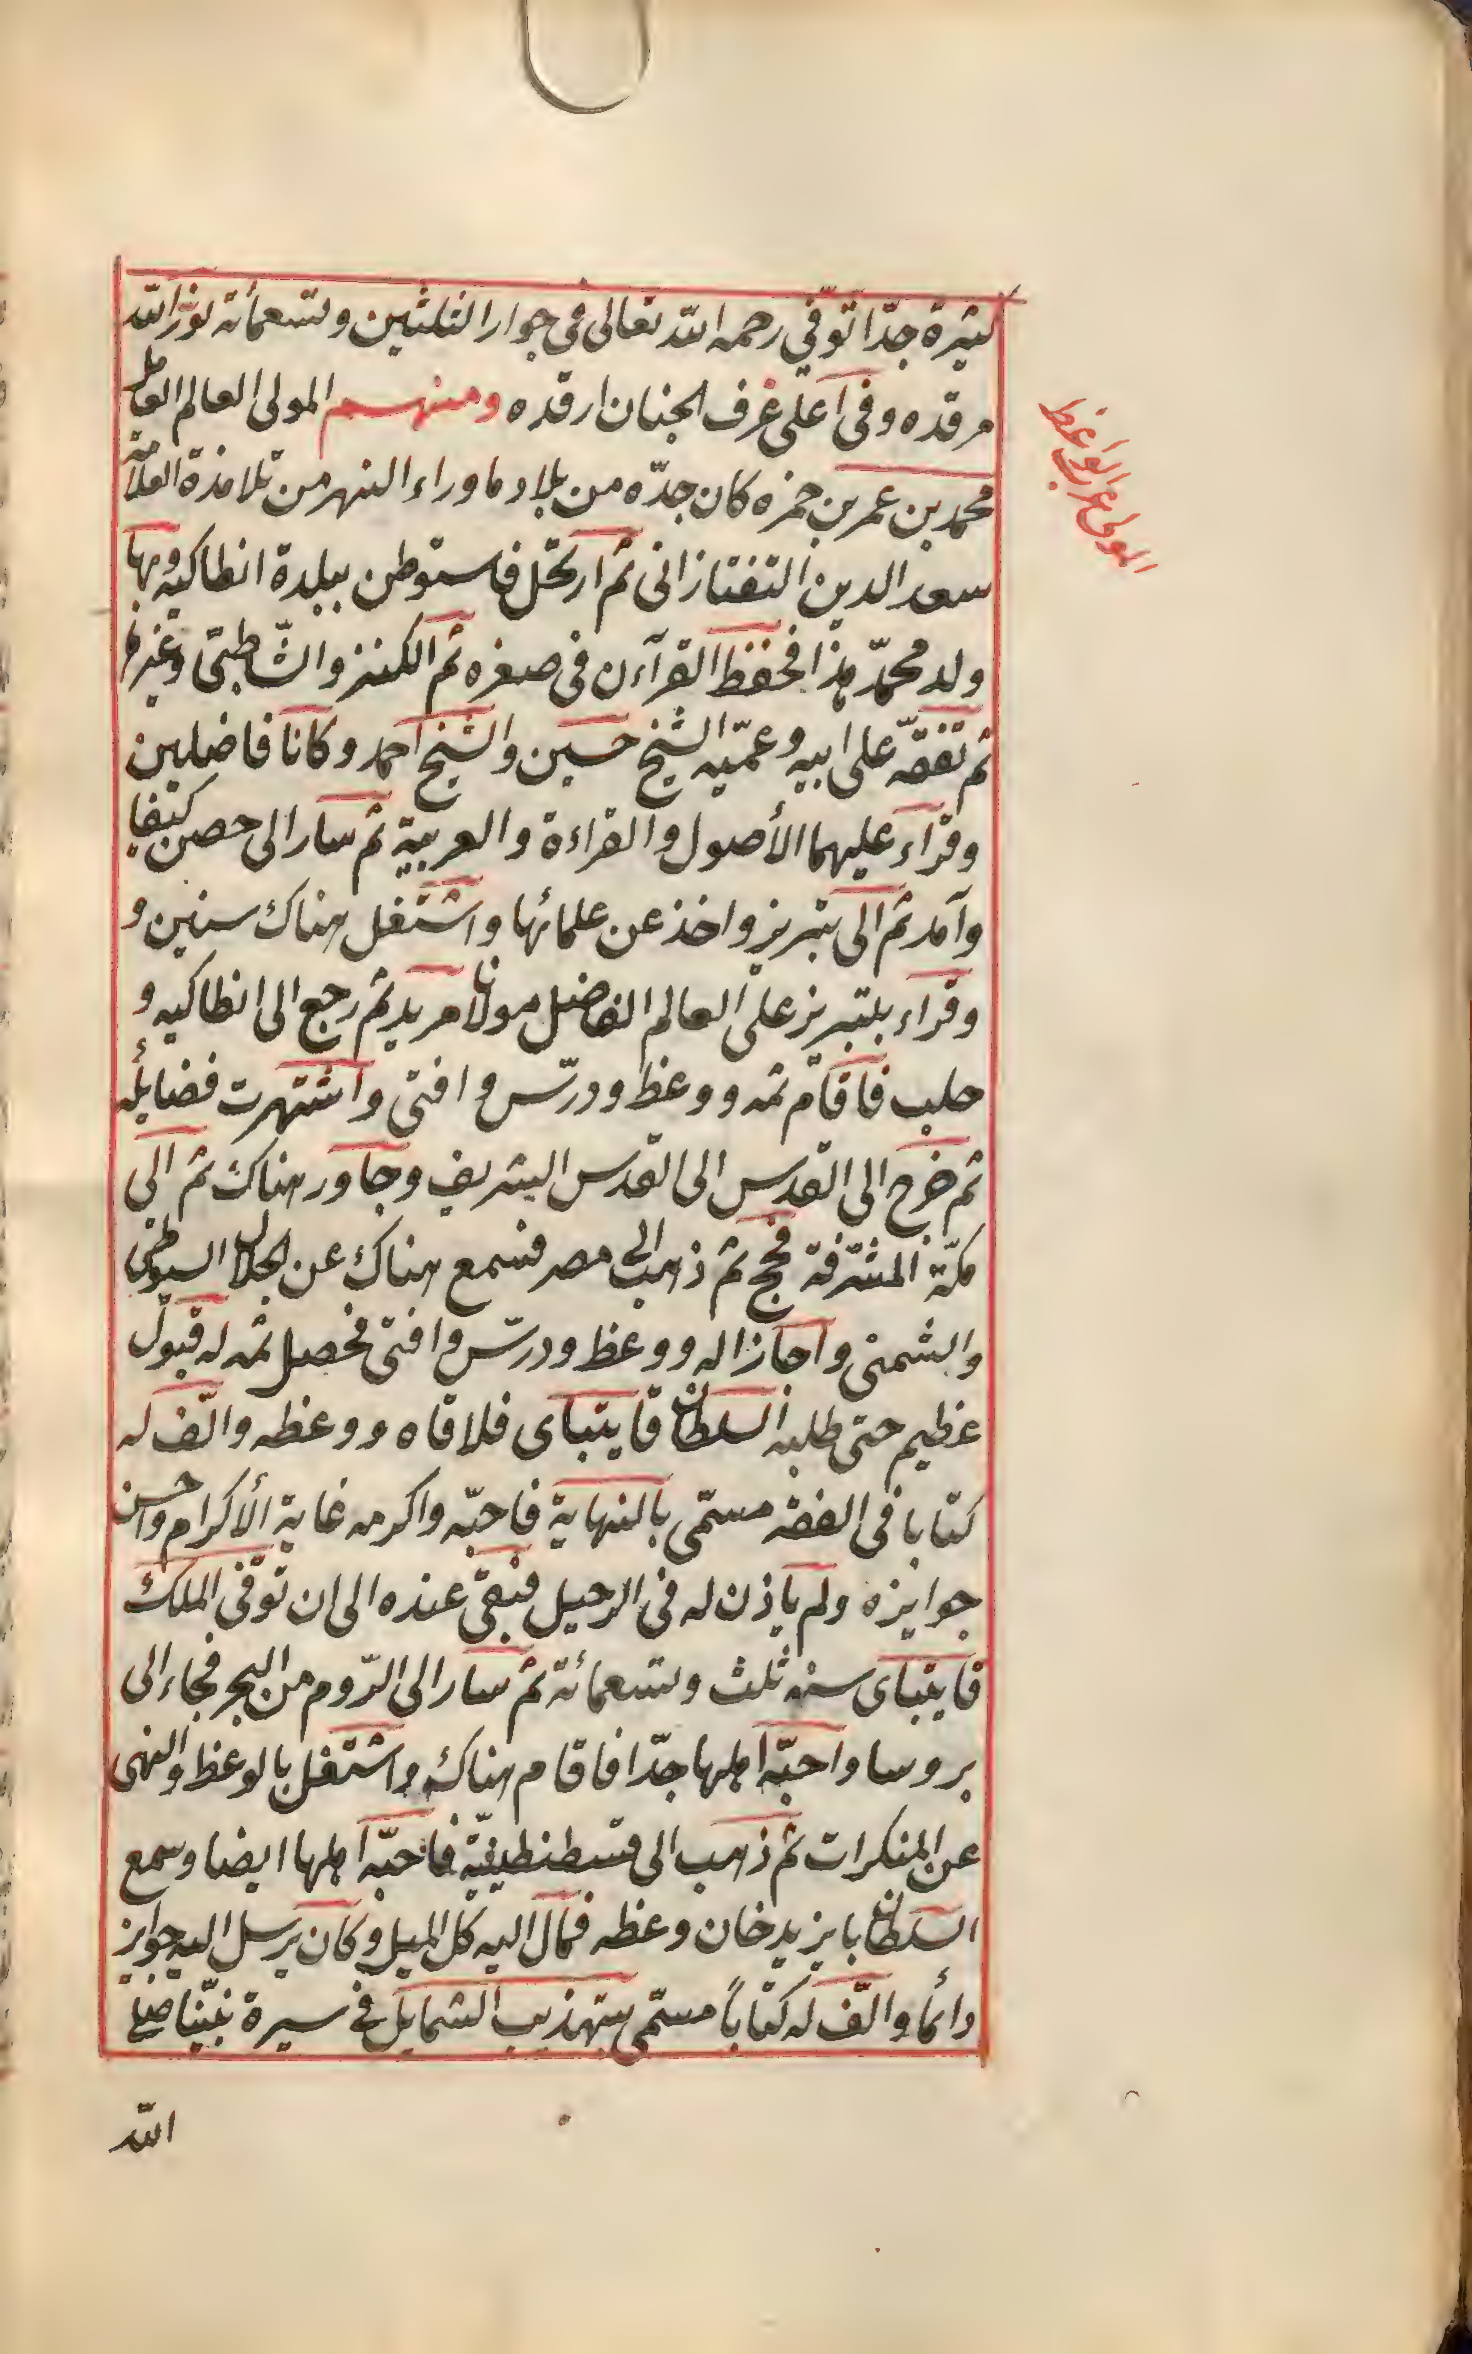 كثيرة جدّا توفّي رحمه الله تعالى في جوار الثلثين وتسعمأئة نوّر الله
مرقده وفي اعلى غرف الجنان ارقده ومنهم المولى العالم العامل
محمد بن عمر بن حمزه كان جدّه من بلاد ما وراء النهر من تلامذة العلامّة
سعد الدين التفتازانى ثم ارتحل فاستوطن ببلدة انطاكيه وبها
ولد محمّد هذا فحفظ القرآءن في صغره ثم الكنز والشّاطبىّ وغيرها
ثم تفقّه على ابيه وعمّيه الشيخ حسين والشيخ احمد وكانا فاضلين
وقراء عليهما الأصول والقراءة والعربية ثم سار الى حصن كيفا
وآمد ثم الى تبريز واخذ عن علمائها واشتغل هناك سنين و
وقراء بتبريز على العالم الفاضل مولانا مريد ثم رجع الى انطاكيه و
حلب فاقام ثمه ووعظ ودرّس وافتى واشتهرت فضايله
ثم خرج الى القدس الى القدس الشريف وجاور هناك ثم الى
مكّة المشرّفة فحج ثم ذهب الى مصر فسمع هناك عن الجلال السيوطى
والشمنى واجازا له ووعظ ودرّس وافتى فحصل ثمه له قبول
عظيم حتى طلبه السلطان قايتباى فلاقاه ووعظه والّف له
كتابا فى الفقه مسمّى بالنهاية فاحبّه واكرمه غاية الأكرام واحسن
جوايزه ولم ياذن له فى الرحيل فبقى عنده الى ان توفّى الملك
قايتباى سنه ثلث وتسعمائة ثم سار الى الرّوم من البحر فجاء الى
بروسا واحبّه اهلها جدّا فاقام هناك واشتغل بالوعظ والنهى
عن المنكرات ثم ذهب الى قسطنطينيّة فاحبّه اهلها ايضا وسمع
السلطان بايزيد خان وعظه فمال اليه كل الميل وكان يرسل اليه جوايز
دائما والّف له كتاباً مسمّى بتهذيب الشمايل في سيرة نبيّنا صلى
الله
المولى عرب الواعظ